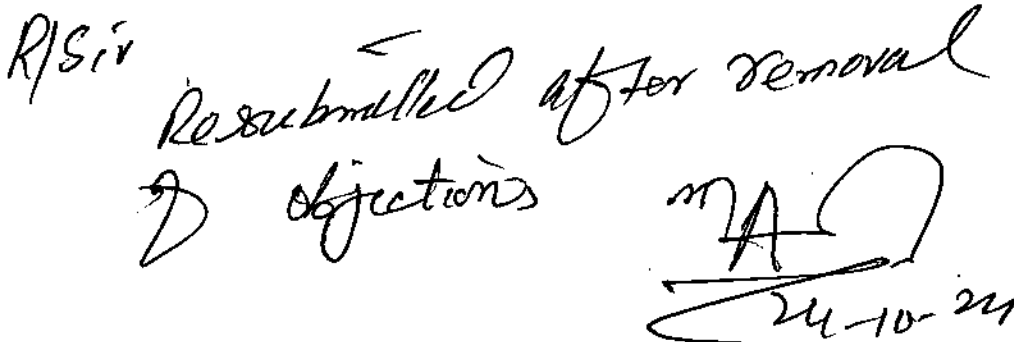 R/Sir
Resubmitted after removal
of objections
24-10-24